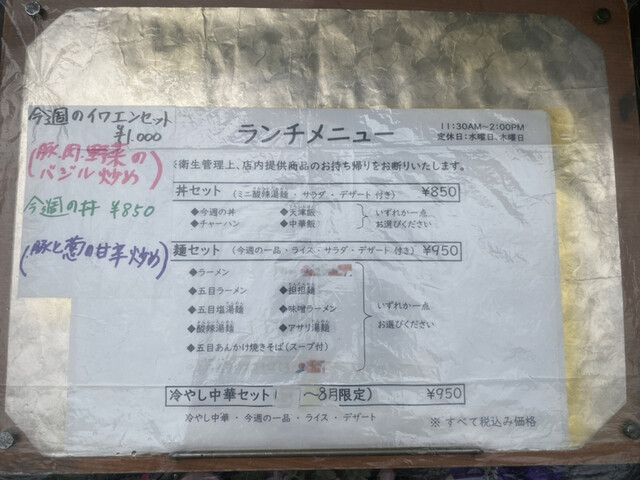 今週のイワエンセット
¥1,000
(豚肉野菜の
バジル炒め)
今週の丼 ¥850
(豚と葱の甘辛炒め)
ランチメニュー
11:30AM～2:00PM
定休日:水曜日、木曜日
衛生管理上、店内提供商品のお持ち帰りをお断りいたします。
丼セット (ミニ酸辣湯麺・サラダ・デザート付き) ¥850
◆今週の丼 ◆天津飯 いずれか一点
◆チャーハン ◆中華飯 お選びください
麺セット (今週の一品・ライス・サラダ・デザート付き) ¥950
◆ラーメン
◆五目ラーメン ◆担担麺
◆五目塩湯麺 ◆味噌ラーメン いずれか一点
◆酸辣湯麺 ◆アサリ湯麺 お選びください
◆五目あんかけ焼きそば(スープ付)
冷やし中華セット( ～8月限定) ¥950
冷やし中華・今週の一品・ライス・デザート
※すべて税込み価格